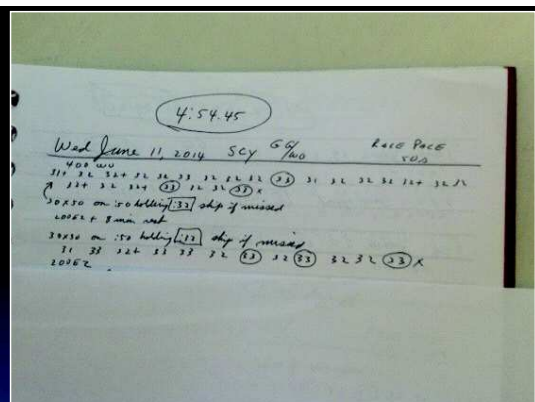 4:54.45
Wed June 11, 2014 SCY GG/WO RACE PACE
400 WU
31+ 32 32+ 32 32 33 32 32 32 33 31 32 32 32 32+ 32 32
32+ 32 32+ 33 32 32 33 x
30x50 on :50 holding :32 skip if missed
200EZ + 8 min rest
30x50 on :50 holding skip if missed
31 33 32+ 33 33 32 33 32 33 32 32 33 x
200EZ